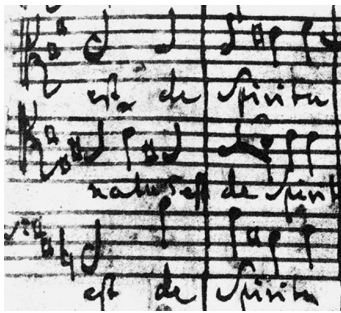 est de Spiritu
natus est de Spirit
est de Spiritu